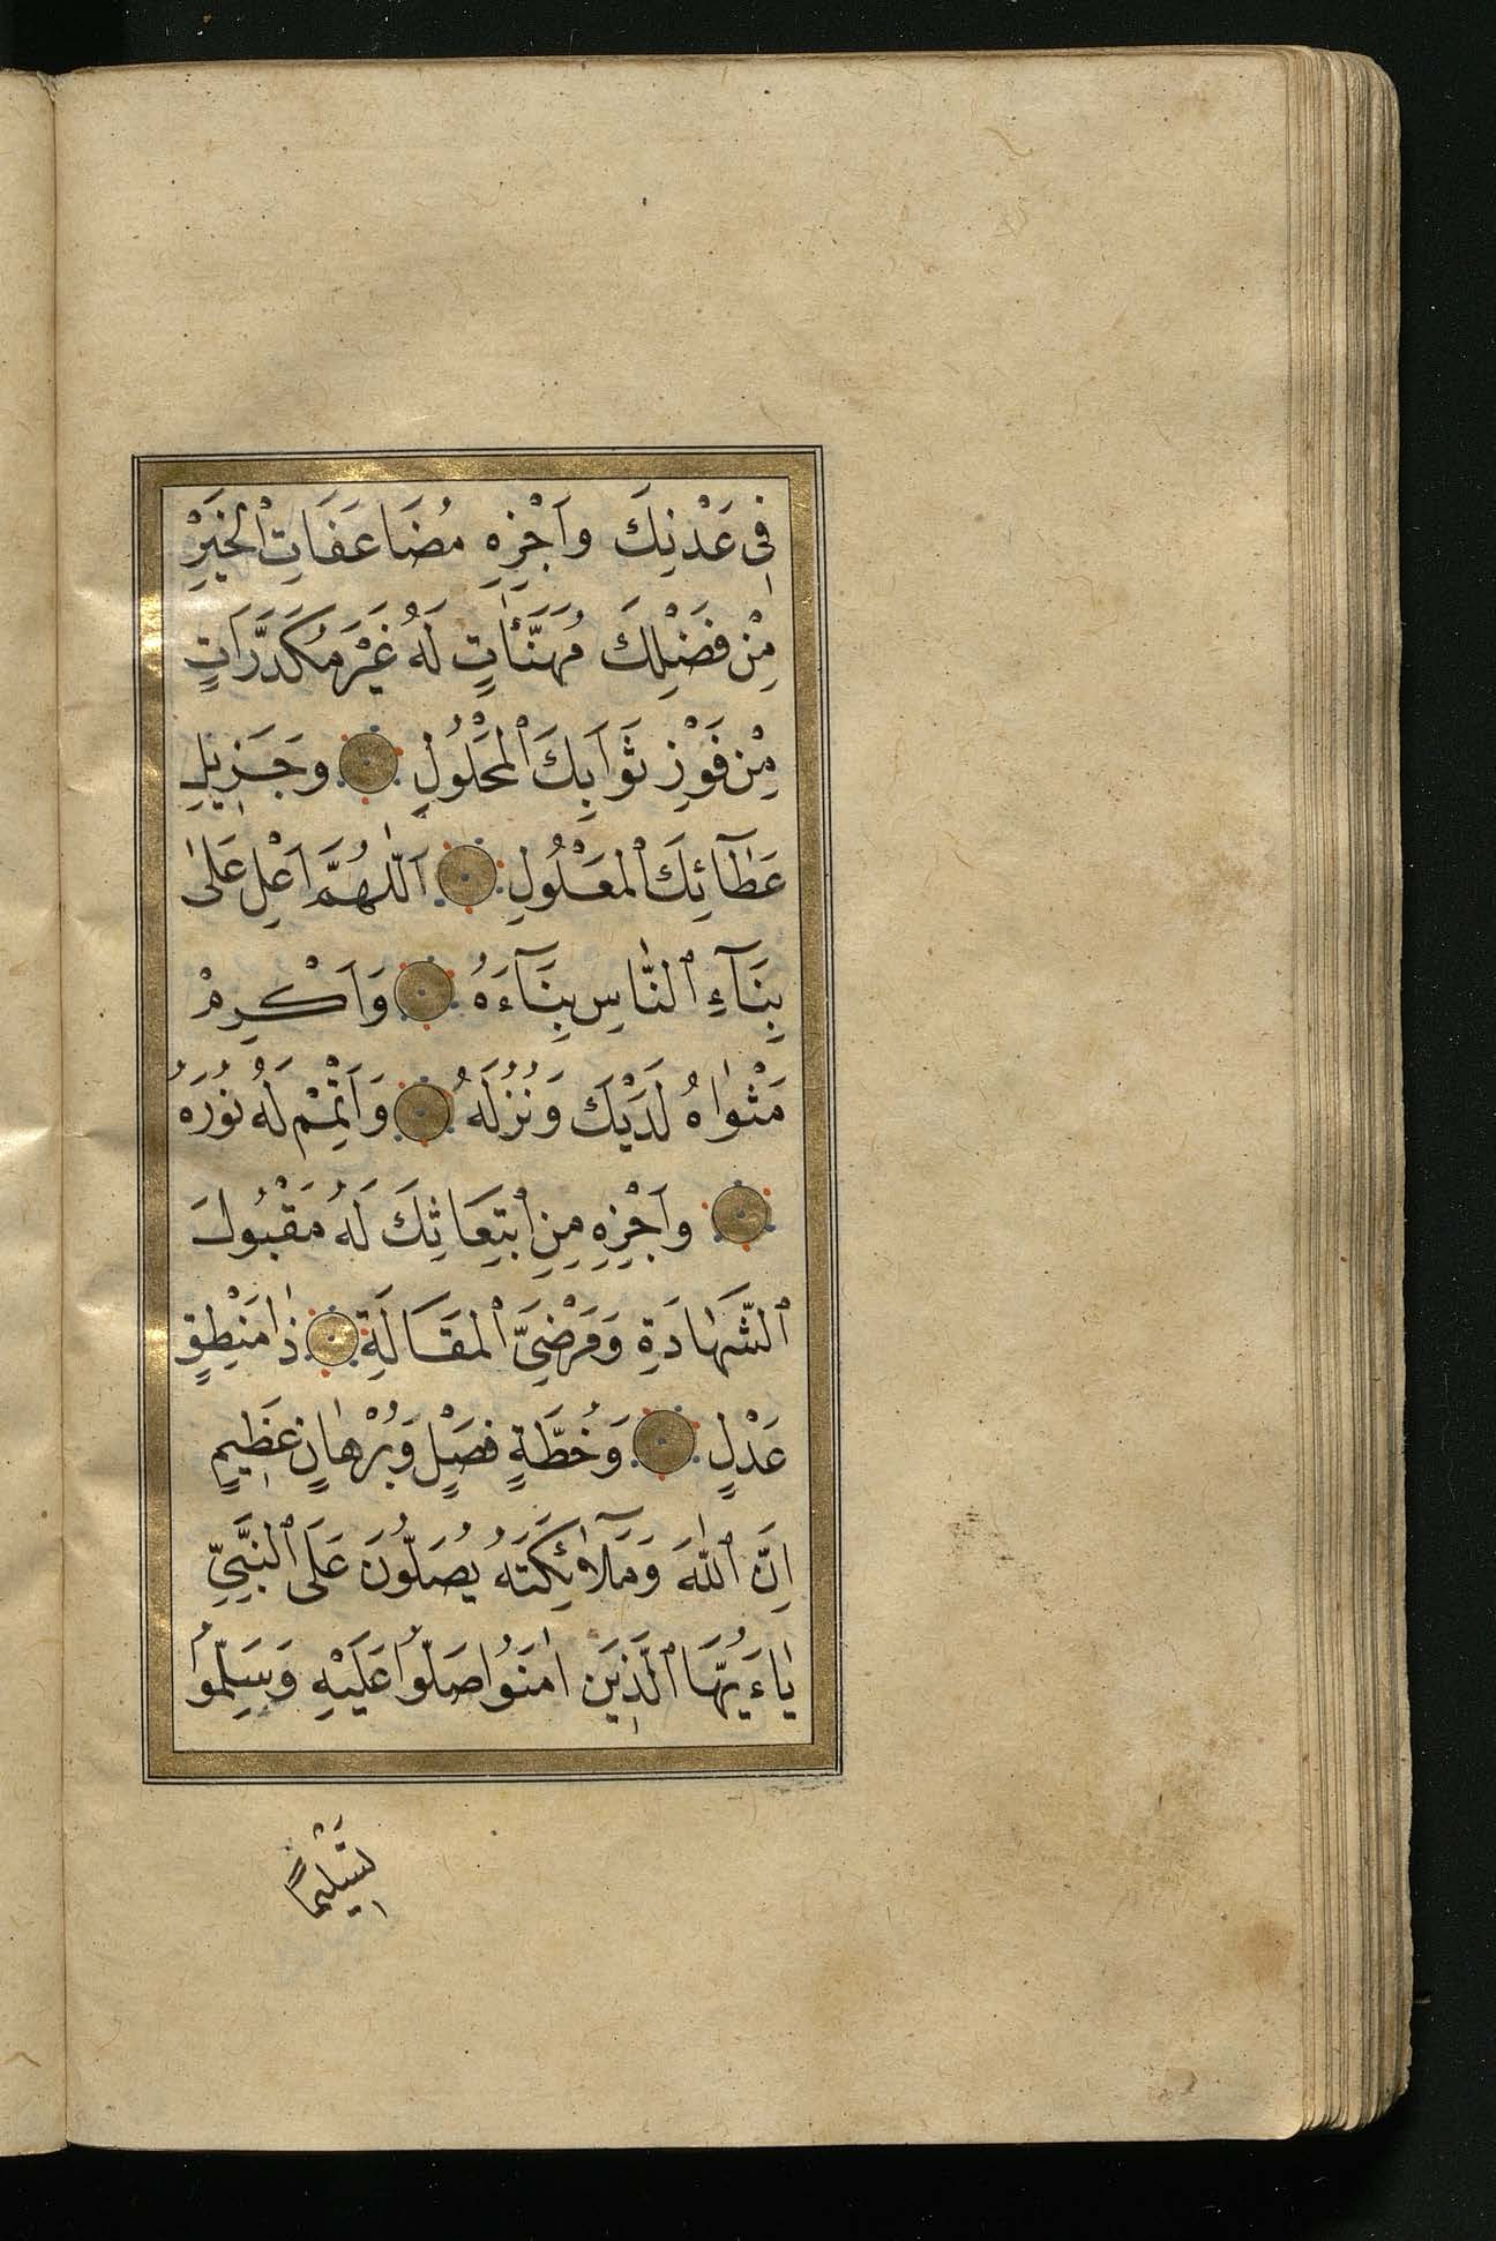 فِى عَدْنِكَ وَاَجْزِهِ مُضَاعَفَاتِ ٱلْخَيْرِ
مِنْ فَضْلِكَ مُهَنَّئَاتٍ لَهُ غَيْرَ مُكَدَّرَاتٍ
مِنْ فَوْزِ ثَوَابِكَ ٱلْمَحْلُولِ وَجَزِيلِ
عَطَآئِكَ ٱلْمَعْلُولِ اَللّٰهُمَّ اَعْلِ عَلٰى
بِنَآءِ ٱلنَّاسِ بِنَآءَهُ وَاَكْرِمْ
مَثْوٰاهُ لَدَيْكَ وَنُزُلَهُ وَاَتْمِمْ لَهُ نُورَهُ
وَاَجْزِهِ مِنِ ٱبْتِعَاثِكَ لَهُ مَقْبُولَ
ٱلشَّهَادَةِ وَمَرْضِىَّ ٱلْمَقَالَةِ ذَا مَنْطِقٍ
عَدْلٍ وَخُطَّةٍ فَصْلٍ وَبُرْهَانٍ عَظِيمٍ
اِنَّ ٱللّٰهَ وَمَلَآئِكَتَهُ يُصَلُّونَ عَلَى ٱلنَّبِىِّ
يٰاءَيُّهَا ٱلَّذِينَ اٰمَنُوا صَلُّوا عَلَيْهِ وَسَلِّمُوا
تَسْلِيمًا